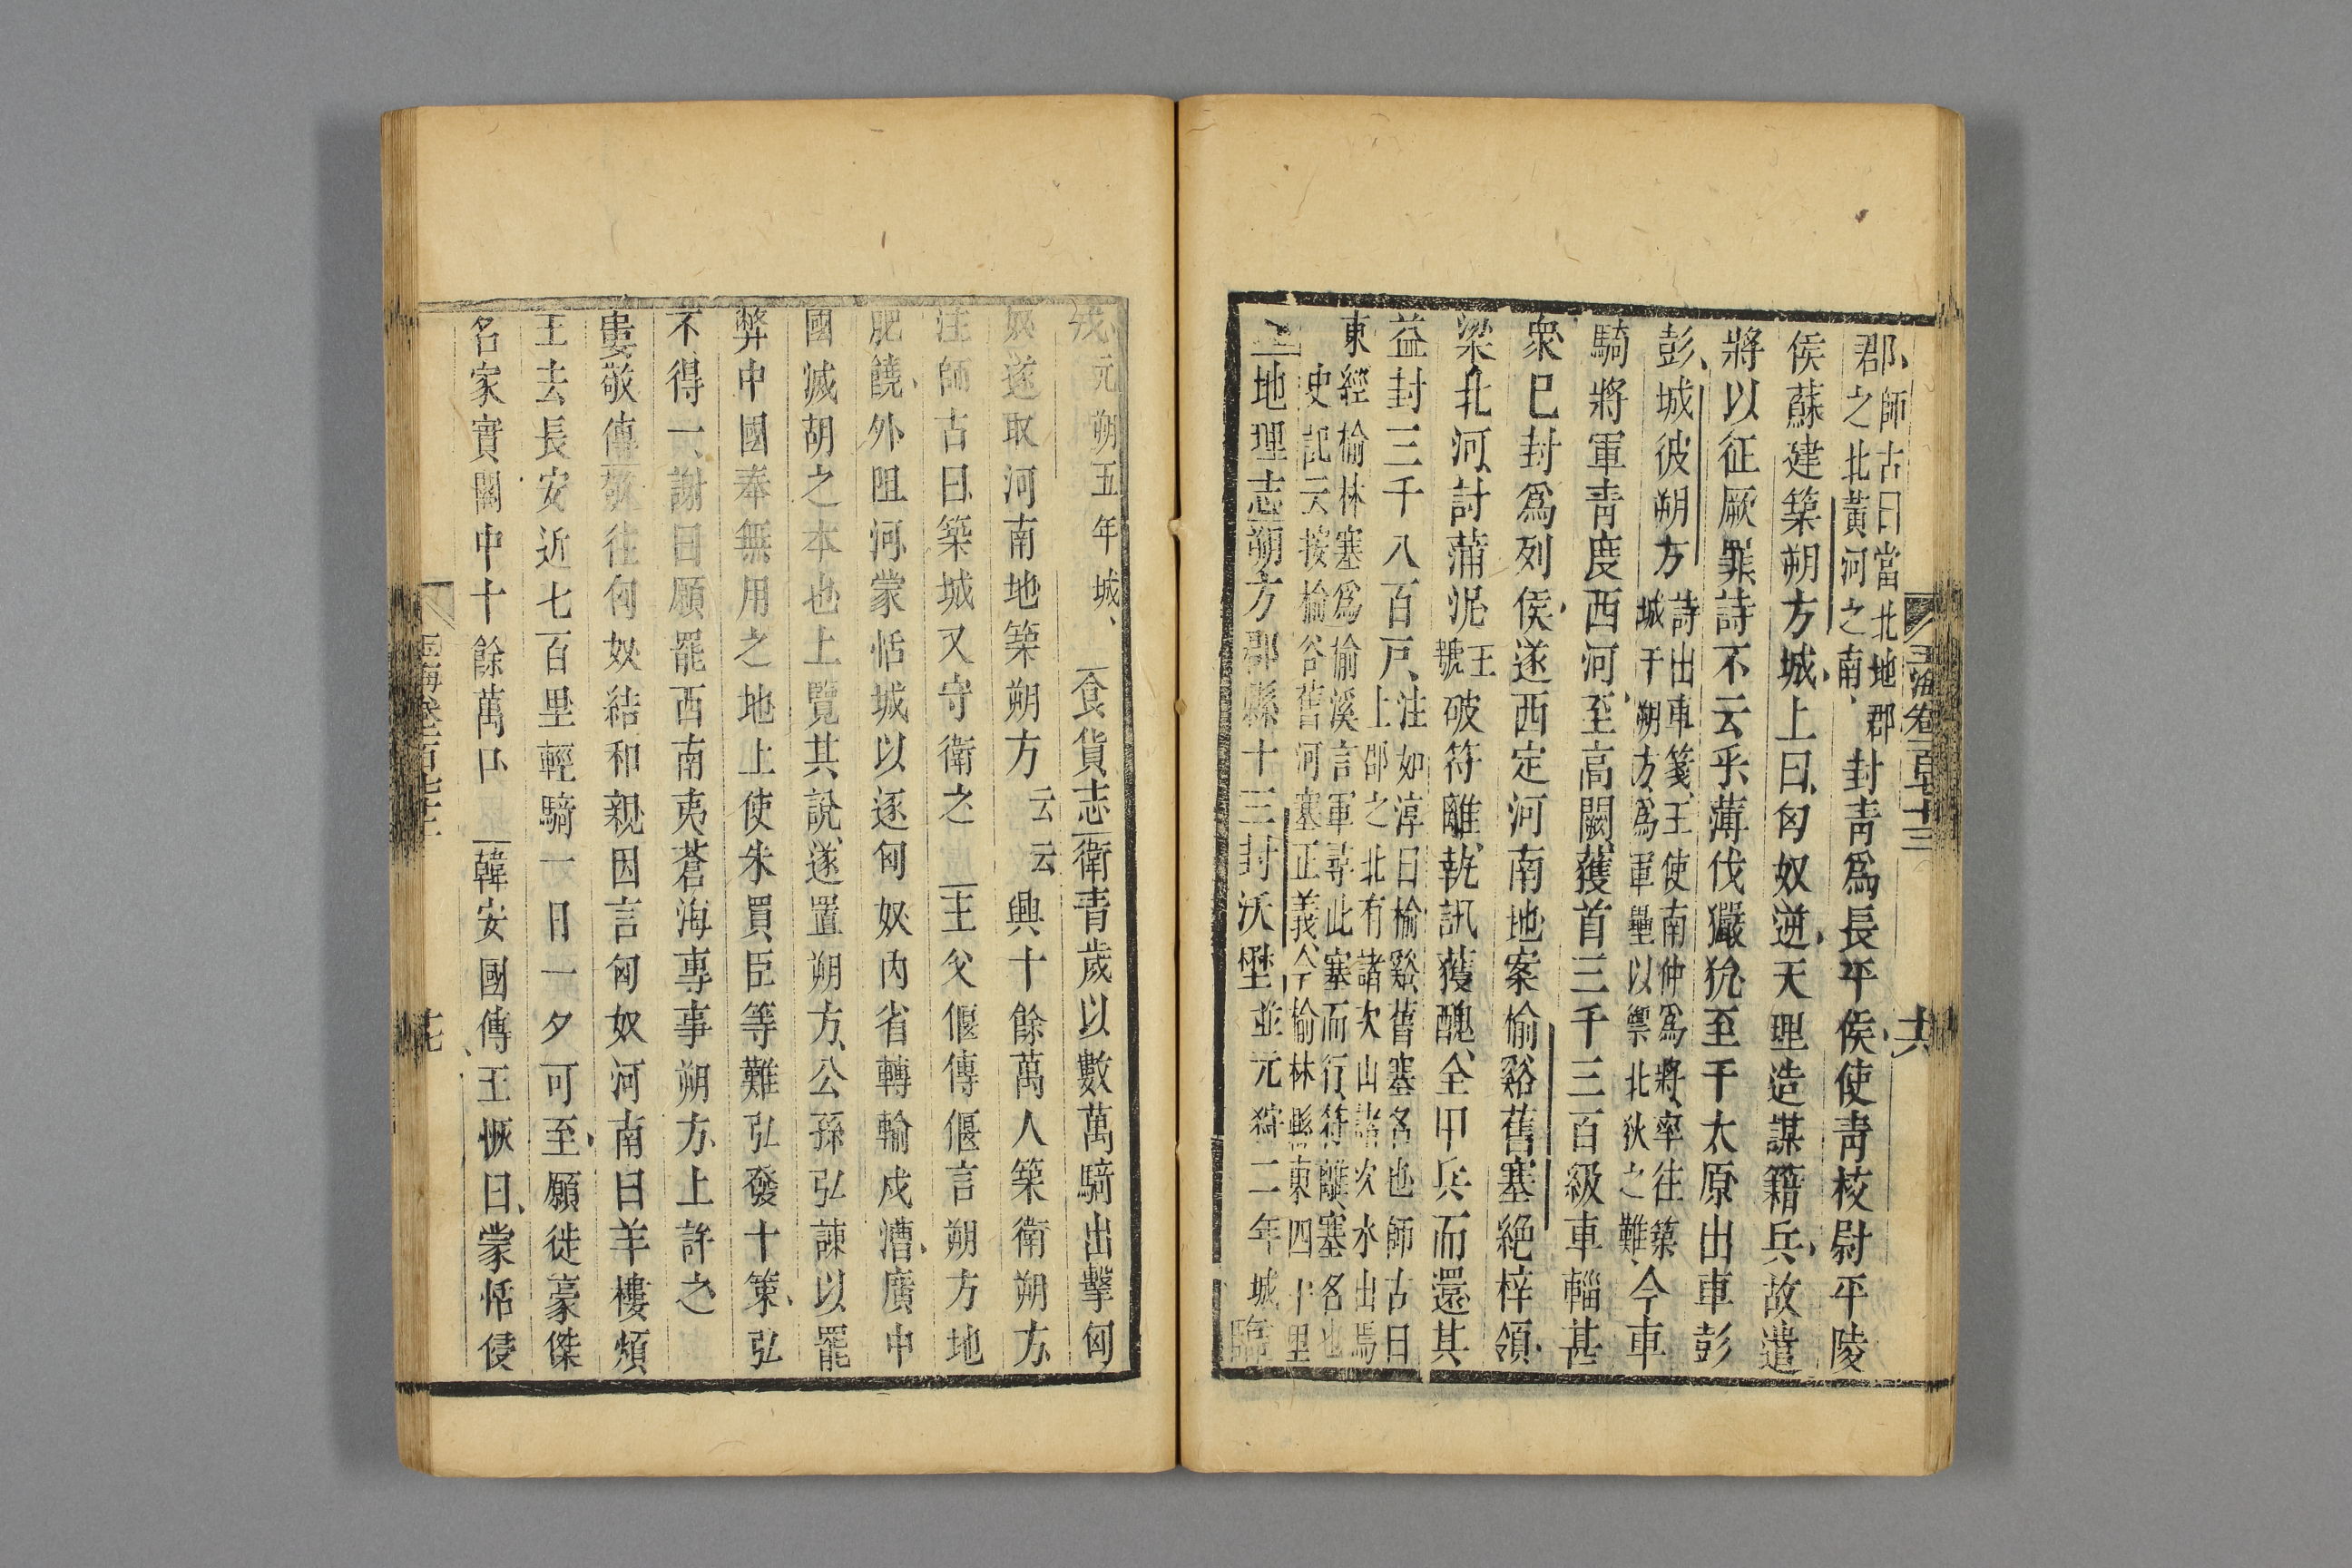 郡師古曰當北地郡之北黃河之南封靑爲長平侯使靑校尉平陵
侯蘇建築朔方城上曰匈奴逆天理造謀籍兵故遣
將以征厥罪詩不云乎薄伐玁狁至于太原出車彭
彭城彼朔方詩出車箋王使南仲爲將率往築城于朔方爲軍壘以禦北狄之難今車
騎將軍靑度西河至高闕獲首三千三百級車輜甚
衆巳封爲列侯遂西定河南地案榆谿舊塞絶梓領
梁北河討蒲泥王號破符離執訊獲醜全甲兵而還其
益封三千八百戸注如淳曰榆谿舊塞名也師古曰上郡之北有諸次山諸次水出焉
東經榆林塞爲榆溪言軍尋此塞而行符離塞名也史記云按榆谷舊河塞正義今榆林縣東四十里
地理志朔方郡縣十三封沃壄並元狩二年城臨
戎元朔五年城食貨志衛青歲以數萬騎出擊匈
奴遂取河南地築朔方云云興十餘萬人築衛朔方
注師古曰築城又守衛之主父偃傳偃言朔方地
肥饒外阻河蒙恬城以逐匈奴内省轉輸戍漕廣中
國滅胡之本也上覽其說遂置朔方公孫弘諫以罷
弊中國奉無用之地上使朱買臣等難弘發十策弘
不得一謝曰願罷西南夷蒼海專事朔方上許之
婁敬傳敬往匈奴結和親因言匈奴河南白羊樓煩
王去長安近七百里輕騎一日一夕可至願徙豪傑
名家實關中十餘萬口韓安國傳王恢曰蒙恬侵